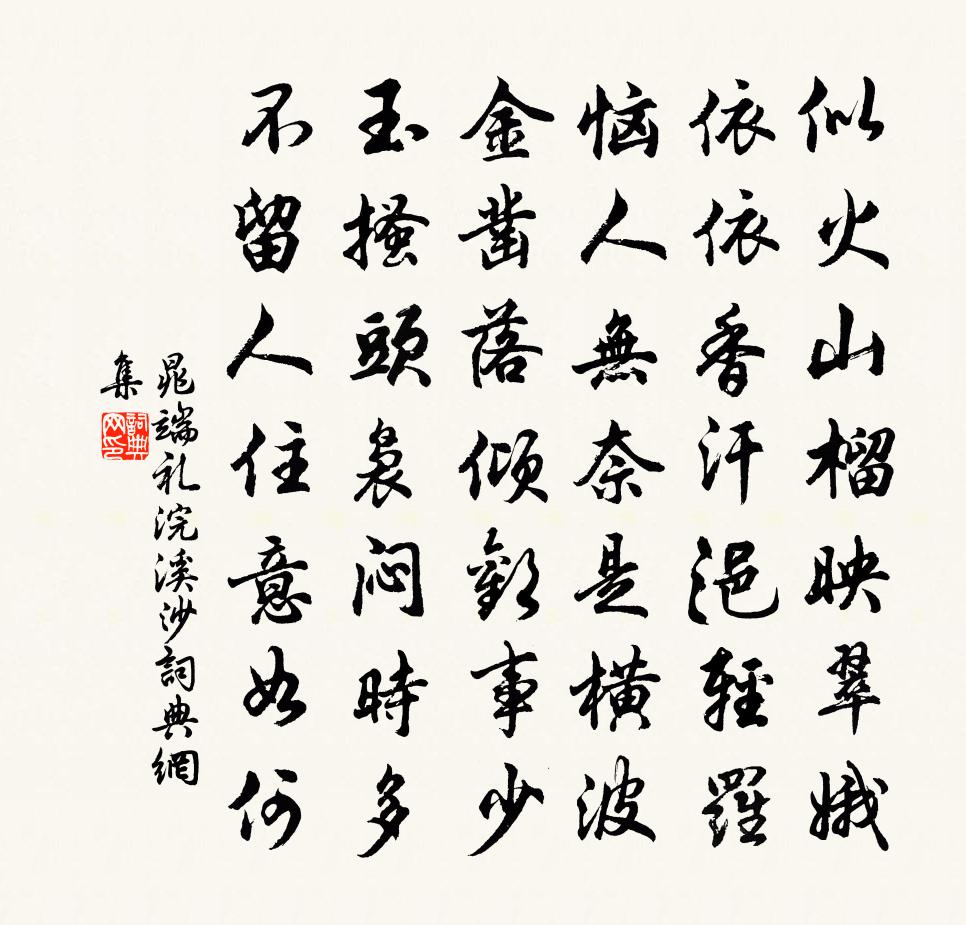 似火山榴映翠娥
依依香汗浥輕羅
恼人無奈是橫波
金凿落傾歡事少
玉搔頭裊闷時多
不留人住意如何
晁端礼浣溪沙詞典網
集
詞典
网印